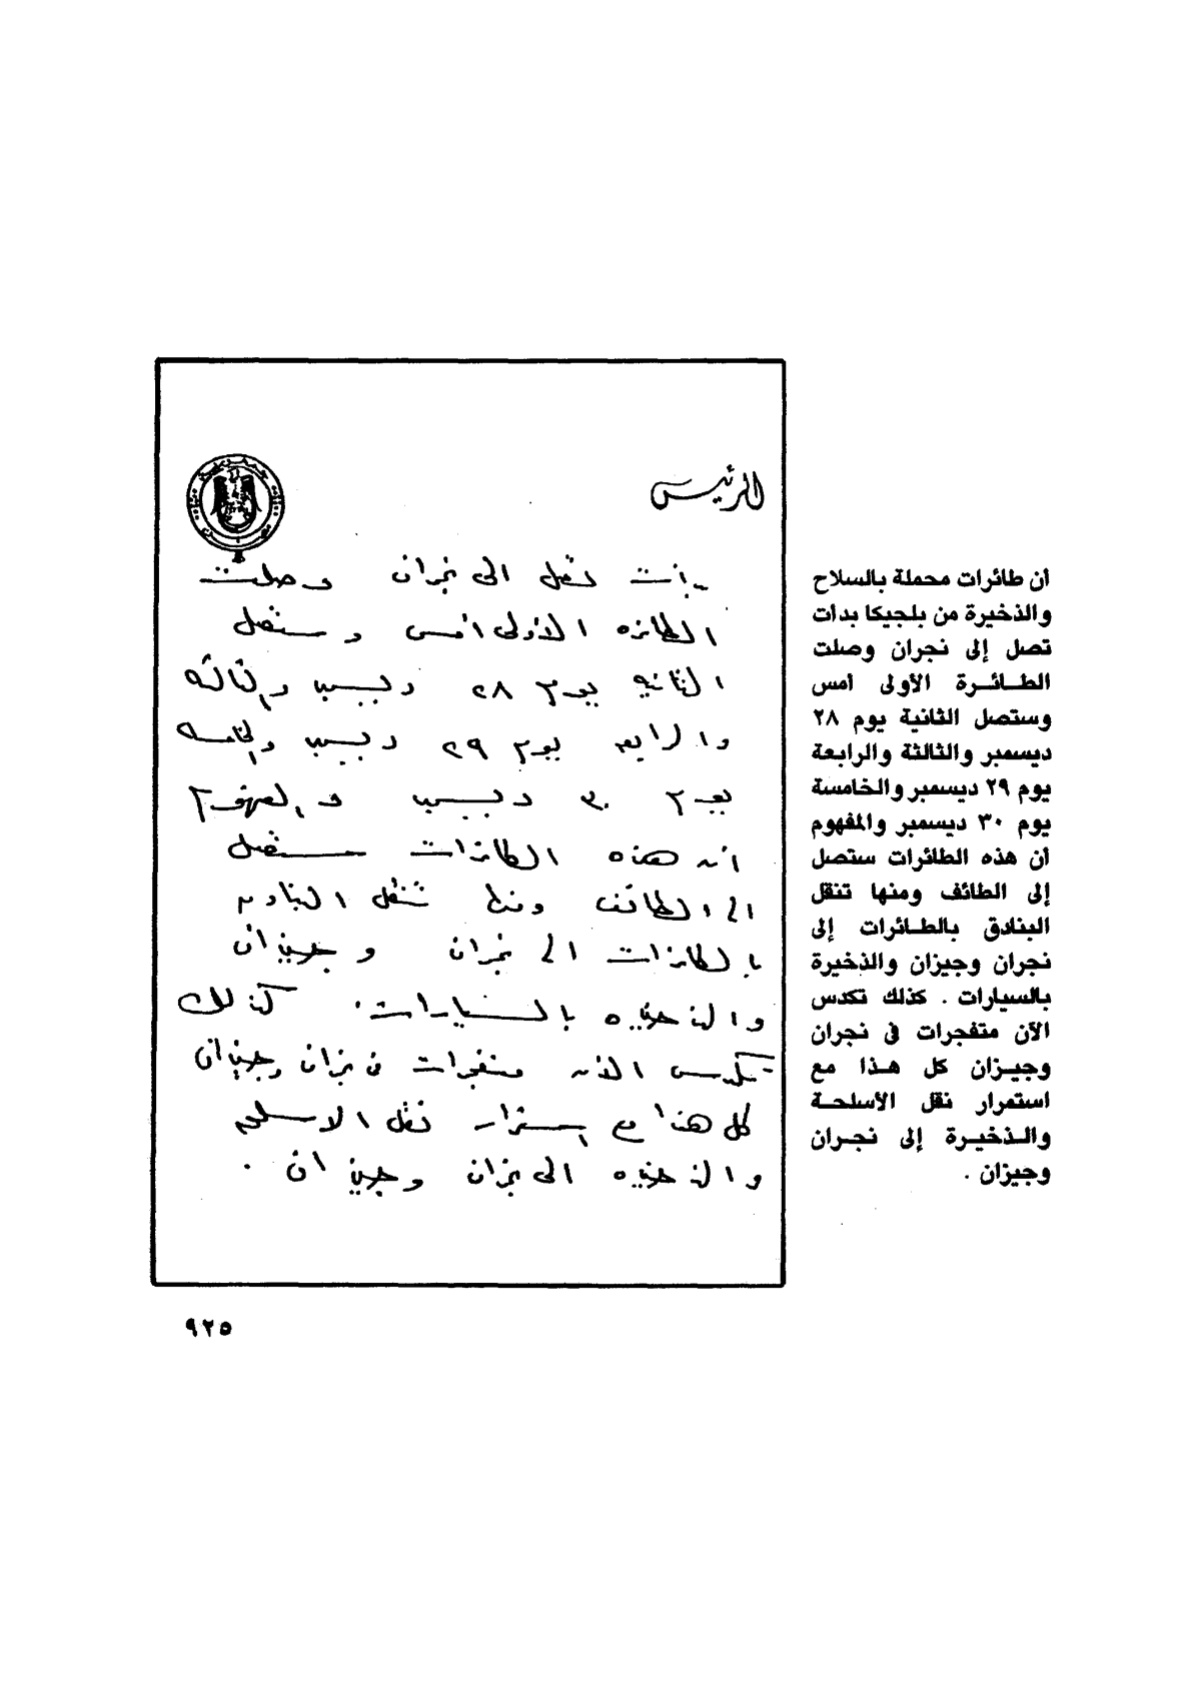 الرئيس
بدأت تصل الى نجران وصلت
الطائره الأولى أمس وستصل
الثانيه يوم ٢٨ ديسمبر والثالثه
والرابعه يوم ٢٩ ديسمبر والخامسه
يوم ٣٠ ديسمبر والمفهوم
أن هذه الطائرات ستصل
الى الطائف ومنها تنقل البنادق
بالطائرات الى نجران وجيزان
والذخيره بالسيارات . كذلك
تكدس الآن متفجرات فى نجران وجيزان
كل هذا مع استمرار نقل الاسلحه
والذخيره الى نجران وجيزان .
أن طائرات محملة بالسلاح
والذخيرة من بلجيكا بدأت
تصل إلى نجران وصلت
الطائرة الأولى أمس
وستصل الثانية يوم ٢٨
ديسمبر والثالثة والرابعة
يوم ٢٩ ديسمبر والخامسة
يوم ٣٠ ديسمبر والمفهوم
أن هذه الطائرات ستصل
إلى الطائف ومنها تنقل
البنادق بالطائرات إلى
نجران وجيزان والذخيرة
بالسيارات . كذلك تكدس
الآن متفجرات فى نجران
وجيزان كل هذا مع
استمرار نقل الأسلحة
والذخيرة إلى نجران
وجيزان .
٩٢٥